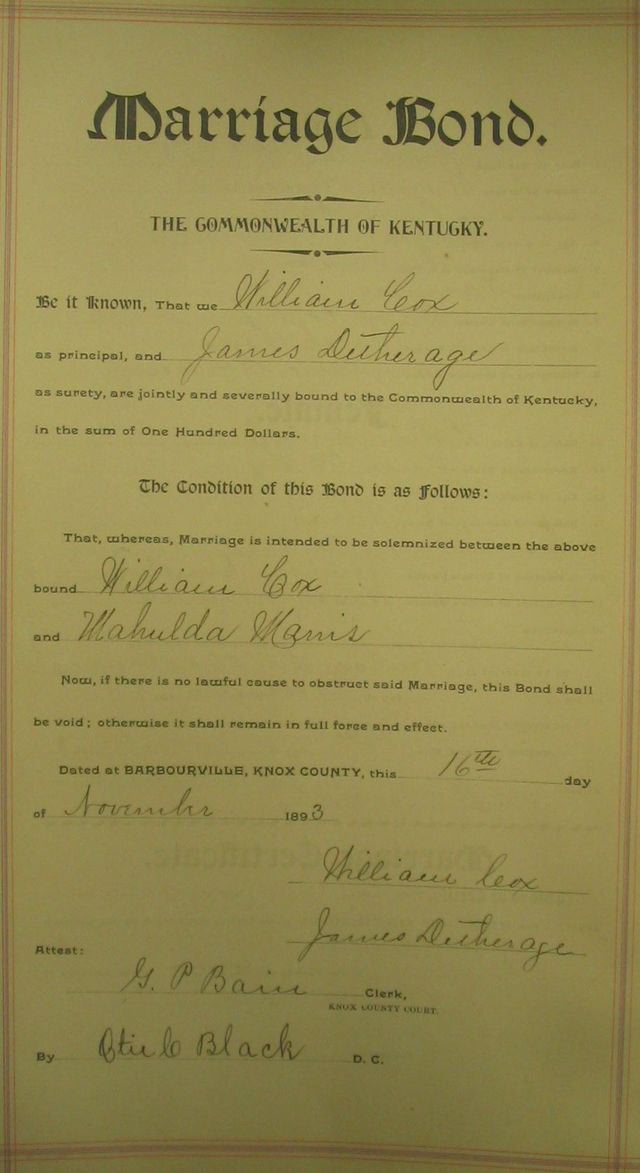 Marriage Bond.
THE COMMONWEALTH OF KENTUCKY.
Be it Known, That we William Cox
as principal, and James Detherage
as surety, are jointly and severally bound to the Commonwealth of Kentucky,
in the sum of One Hundred Dollars.
The Condition of this Bond is as Follows:
That, whereas, Marriage is intended to be solemnized between the above
bound William Cox
and Mahulda
Now, if there is no lawful cause to obstruct said Marriage, this Bond shall
be void; otherwise it shall remain in full force and effect.
Dated at BARBOURVILLE, KNOX COUNTY, this 16th day
of November 1893
William Cox
James Detherage
Attest:
G. P Bain Clerk,
KNOX COUNTY COURT.
By Black D. C.